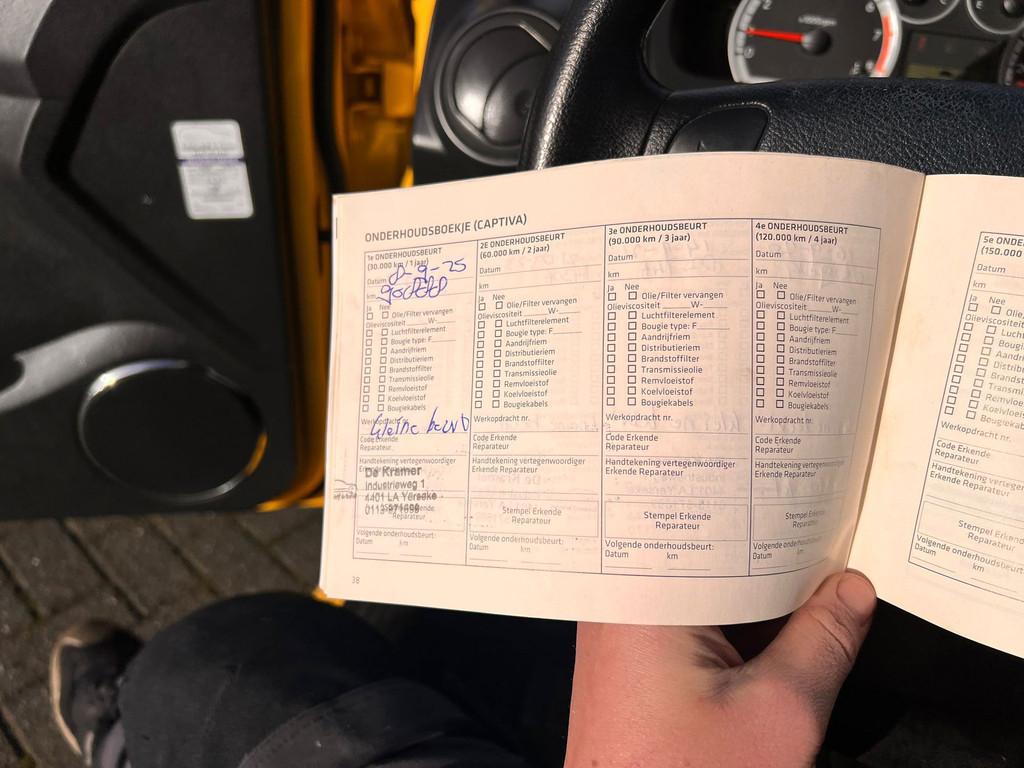 ONDERHOUDSBOEKJE (CAPTIVA)
1e ONDERHOUDSBEURT
(30.000 km / 1 jaar)
Datum 8-9-25
km
Ja Nee
Olie/Filter vervangen
Olieviscositeit W-
Luchtfilterelement
Bougie type: F
Aandrijfriem
Distributieriem
Brandstoffilter
Transmissieolie
Remvloeistof
Koelvloeistof
Bougiekabels
Werkopdracht
Kleine beurt
Code Erkende
Reparateur.
Handtekening vertegenwoordiger
De Kramer
Industrieweg 1
4401 LA Yerseke
Reparateur
Volgende onderhoudsbeurt:
Datum km
2E ONDERHOUDSBEURT
(60.000 km / 2 jaar)
Datum
km
Ja Nee
Olie/Filter vervangen
Olieviscositeit W-
Luchtfilterelement
Bougie type: F
Aandrijfriem
Distributieriem
Brandstoffilter
Transmissieolie
Remvloeistof
Koelvloeistof
Bougiekabels
Werkopdracht nr.
Code Erkende
Reparateur.
Handtekening vertegenwoordiger
Erkende Reparateur.
Stempel Erkende
Reparateur
Volgende onderhoudsbeurt:
Datum km
3e ONDERHOUDSBEURT
(90.000 km / 3 jaar)
Datum
km
Ja Nee
Olie/Filter vervangen
Olieviscositeit W-
Luchtfilterelement
Bougie type: F
Aandrijfriem
Distributieriem
Brandstoffilter
Transmissieolie
Remvloeistof
Koelvloeistof
Bougiekabels
Werkopdracht nr.
Code Erkende
Reparateur.
Handtekening vertegenwoordiger
Erkende Reparateur.
Stempel Erkende
Reparateur
Volgende onderhoudsbeurt:
Datum km
4e ONDERHOUDSBEURT
(120.000 km / 4 jaar)
Datum
km
Ja Nee
Olie/Filter vervangen
Olieviscositeit W-
Luchtfilterelement
Bougie type: F
Aandrijfriem
Distributieriem
Brandstoffilter
Transmissieolie
Remvloeistof
Koelvloeistof
Bougiekabels
Werkopdracht nr.
Code Erkende
Reparateur.
Handtekening vertegenwoordiger
Erkende Reparateur.
Stempel Erkende
Reparateur
Volgende onderhoudsbeurt:
Datum km
38
5e ONDER
(150.000
Datum
km
Ja Nee
Olie/
Olieviscositeit
Luchtf
Bougi
Aandri
Distrib
Brands
Transmi
Remvloe
Koelvloei
Bougiekab
Werkopdracht nr.
Code Erkende
Reparateur.
Handtekening vertegen
Erkende Reparateur.
Stempel Erkend
Reparateur
Volgende onderhoudsbeurt
Datum km